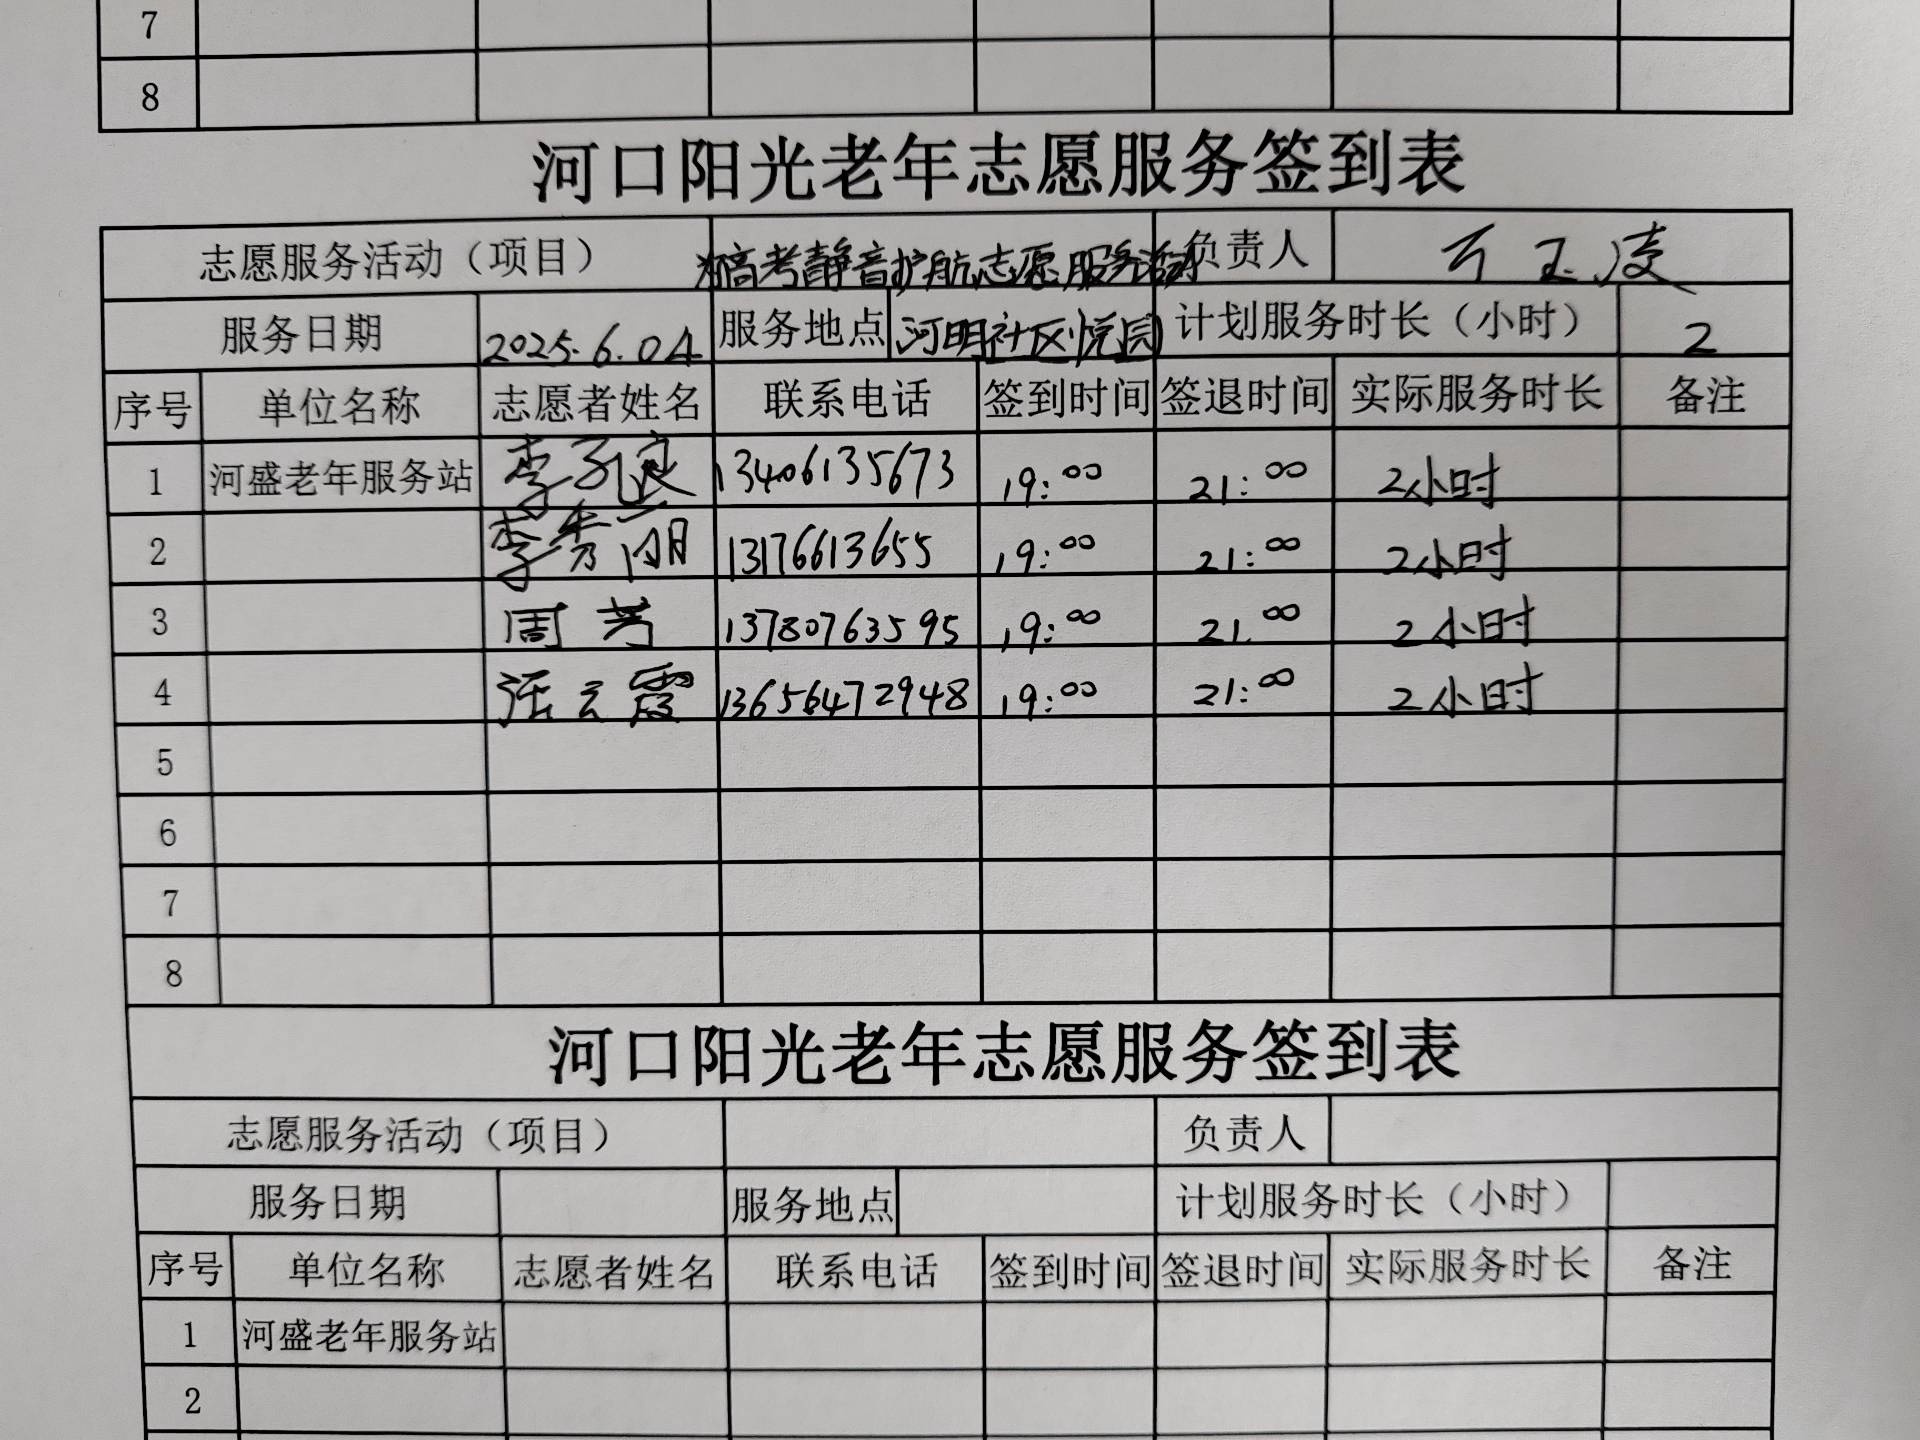 7
8
河口阳光老年志愿服务签到表
志愿服务活动（项目） 高考静音护航志愿服务活动 负责人 玉凌
服务日期 2025.6.04 服务地点 河明社区悦园 计划服务时长（小时） 2
序号 单位名称 志愿者姓名 联系电话 签到时间 签退时间 实际服务时长 备注
1 河盛老年服务站 李 13406135673 19:00 21:00 2小时
2 李秀丽 13176613655 19:00 21:00 2小时
3 周芳 13780763595 19:00 21:00 2小时
4 张云霞 13656472948 19:00 21:00 2小时
5
6
7
8
河口阳光老年志愿服务签到表
志愿服务活动（项目） 负责人
服务日期 服务地点 计划服务时长（小时）
序号 单位名称 志愿者姓名 联系电话 签到时间 签退时间 实际服务时长 备注
1 河盛老年服务站
2